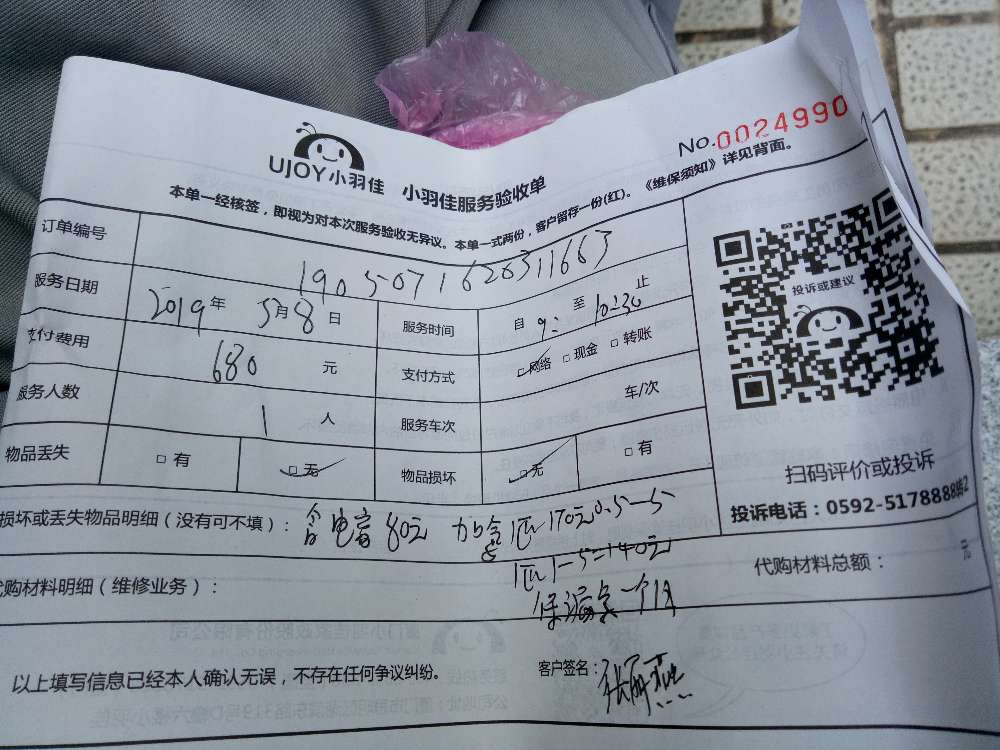 No.0024990
UJOY小羽佳 小羽佳服务验收单
本单一经核签，即视为对本次服务验收无异议。本单一式两份，客户留存一份(红)。《维保须知》详见背面。
订单编号 1905071626311663
服务日期 2019年5月8日 服务时间 自9: 至10:30止
支付费用 680元 支付方式 □网络 □现金 □转账
服务人数 1人 服务车次 车/次
物品丢失 □有 □无 物品损坏 □无 □有
投诉或建议
扫码评价或投诉
投诉电话：0592-5178888转2
损坏或丢失物品明细（没有可不填）： 电容80元 加 1匹170元0.5-5
1匹1-5=140元
代购材料明细（维修业务）： 保漏 一个月
代购材料总额： 元
以上填写信息已经本人确认无误，不存在任何争议纠纷。 客户签名：张